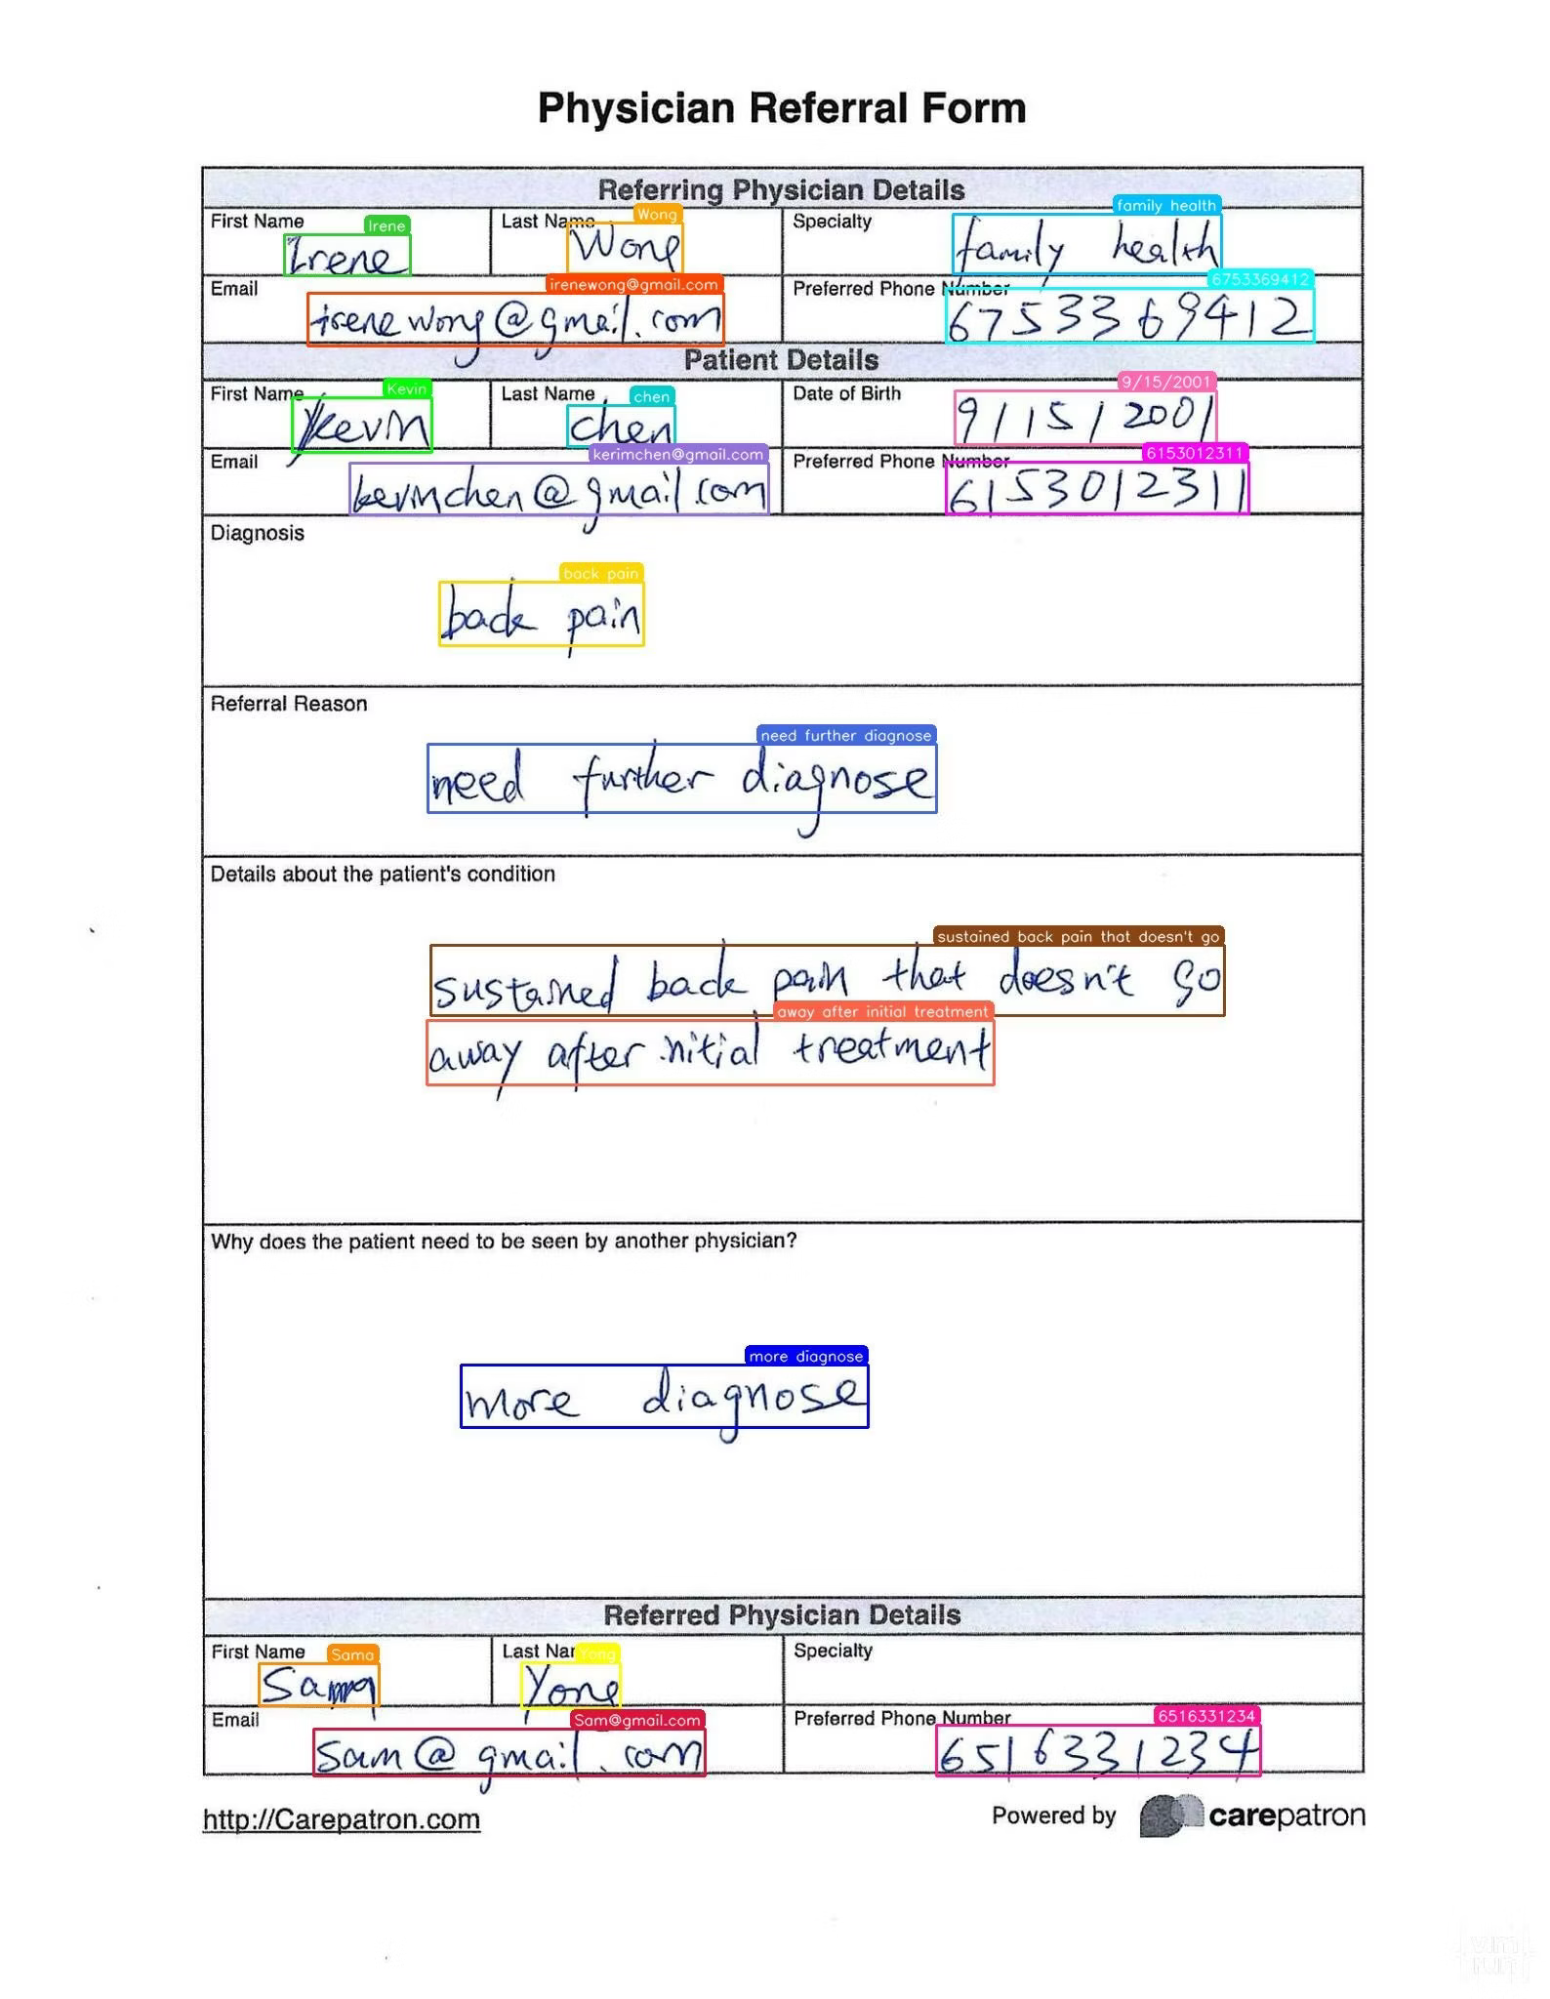 Physician Referral Form
Referring Physician Details
First Name Irene
Irene
Last Name Wong
Wong
Specialty family health
family health
Email irenewong@gmail.com
irenewong@gmail.com
Preferred Phone Number 6753369412
6753369412
Patient Details
First Name Kevin
Kevin
Last Name chen
chen
Date of Birth 9/15/2001
9/15/2001
Email kerimchen@gmail.com
kevinchen@gmail.com
Preferred Phone Number 6153012311
6153012311
Diagnosis
back pain
back pain
Referral Reason
need further diagnose
need further diagnose
Details about the patient's condition
sustained back pain that doesn't go
sustained back pain that doesn't go
away after initial treatment
away after initial treatment
Why does the patient need to be seen by another physician?
more diagnose
more diagnose
Referred Physician Details
First Name Sama
Last Nar Yong
Yong
Specialty
Email Sam@gmail.com
Sam@gmail.com
Preferred Phone Number 6516331234
6516331234
http://Carepatron.com
Powered by carepatron